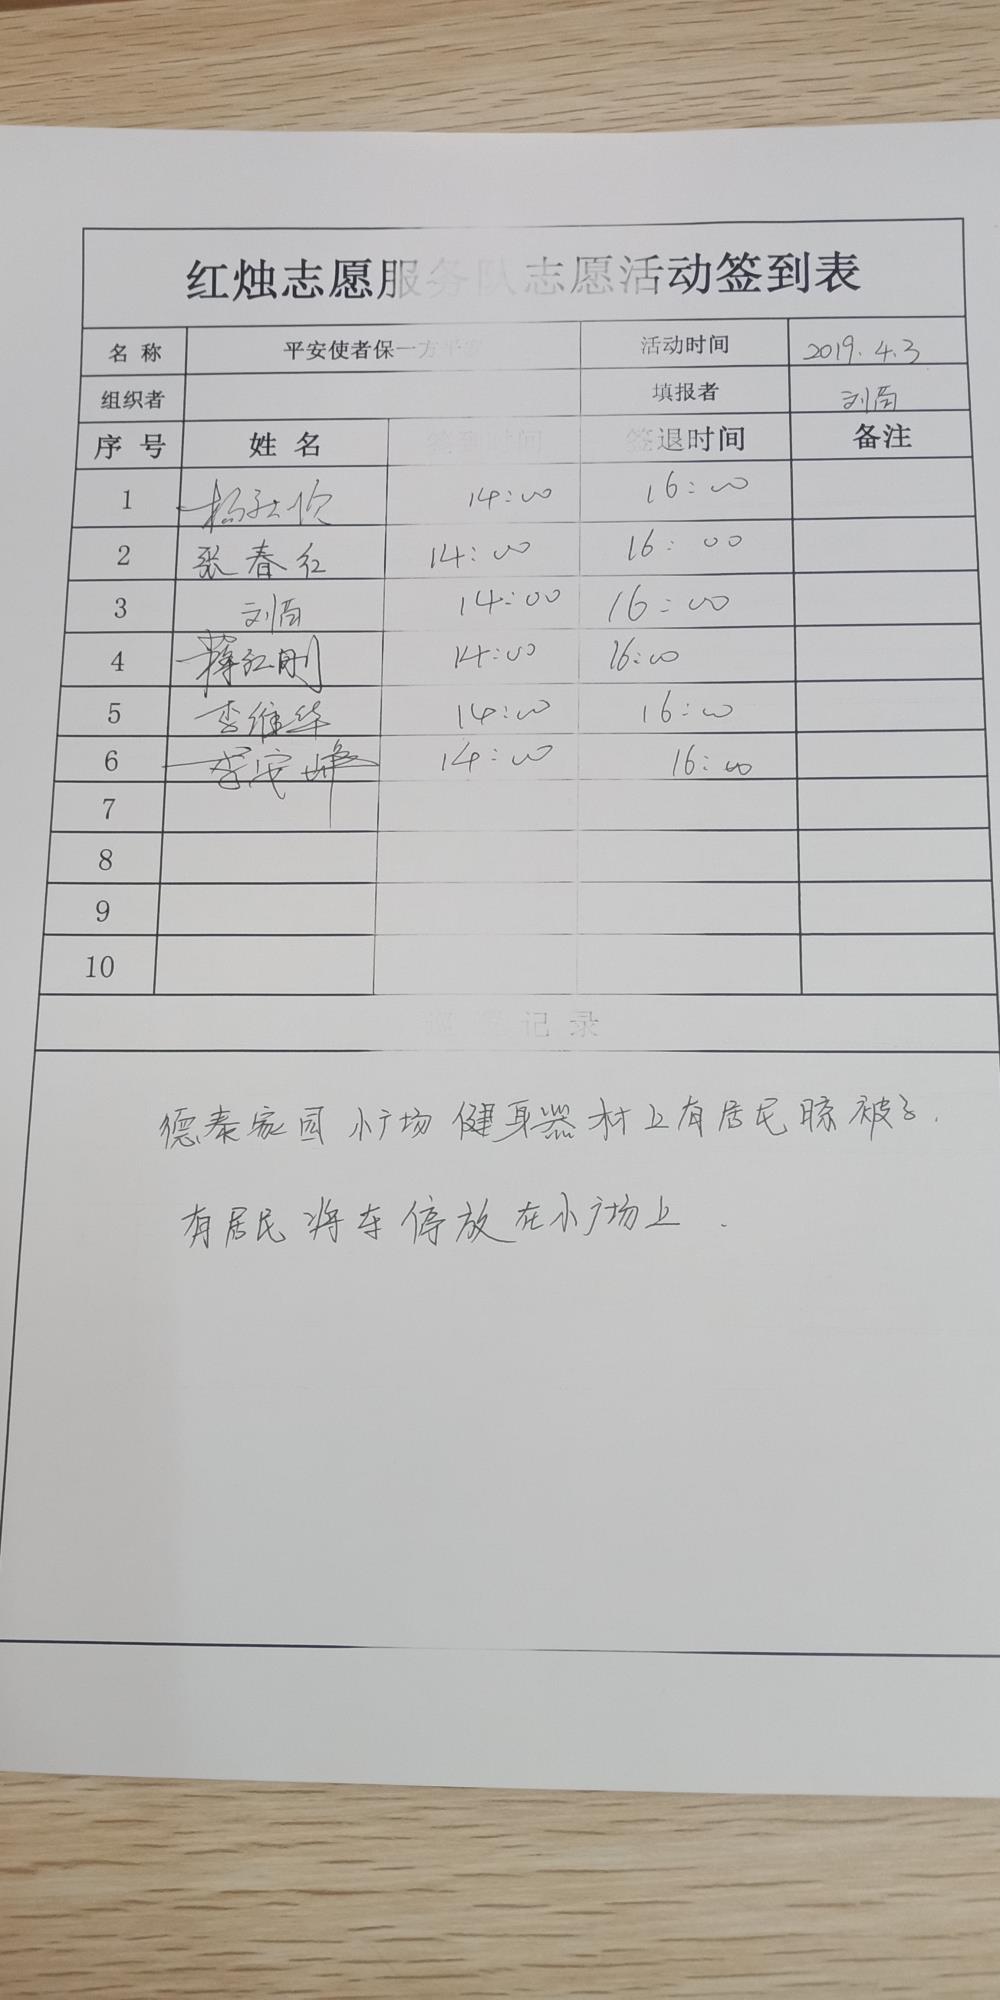 红烛志愿服务队志愿活动签到表
名 称 平安使者保一方平安 活动时间 2019.4.3
组织者 填报者 刘茵
序 号 姓 名 签到时间 签退时间 备注
1 14:00 16:00
2 张春红 14:00 16:00
3 刘茵 14:00 16:00
4 蒋红刚 14:00 16:00
5 李维华 14:00 16:00
6 李安 14:00 16:00
7
8
9
10
记 录
德泰家园小广场健身器材上有居民晾被子.
有居民将车停放在小广场上.